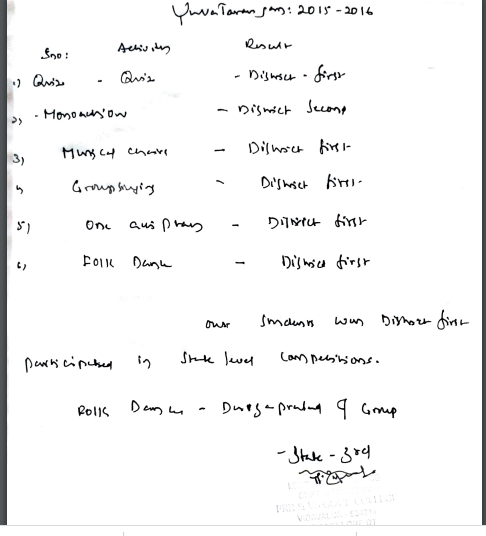 YuvaTarangam: 2015-2016
Sno: Activity Result
1) Quiz - Quiz - District - first
2) - Monoaction - District Second
3) Musical chairs - District first
4 Groupsinging - District first.
5) One act play - District first
6) Folk Dance - District first
our students won District first
participated in State level competitions.
Folk Dance - Durga prasad & Group
- State - 3rd